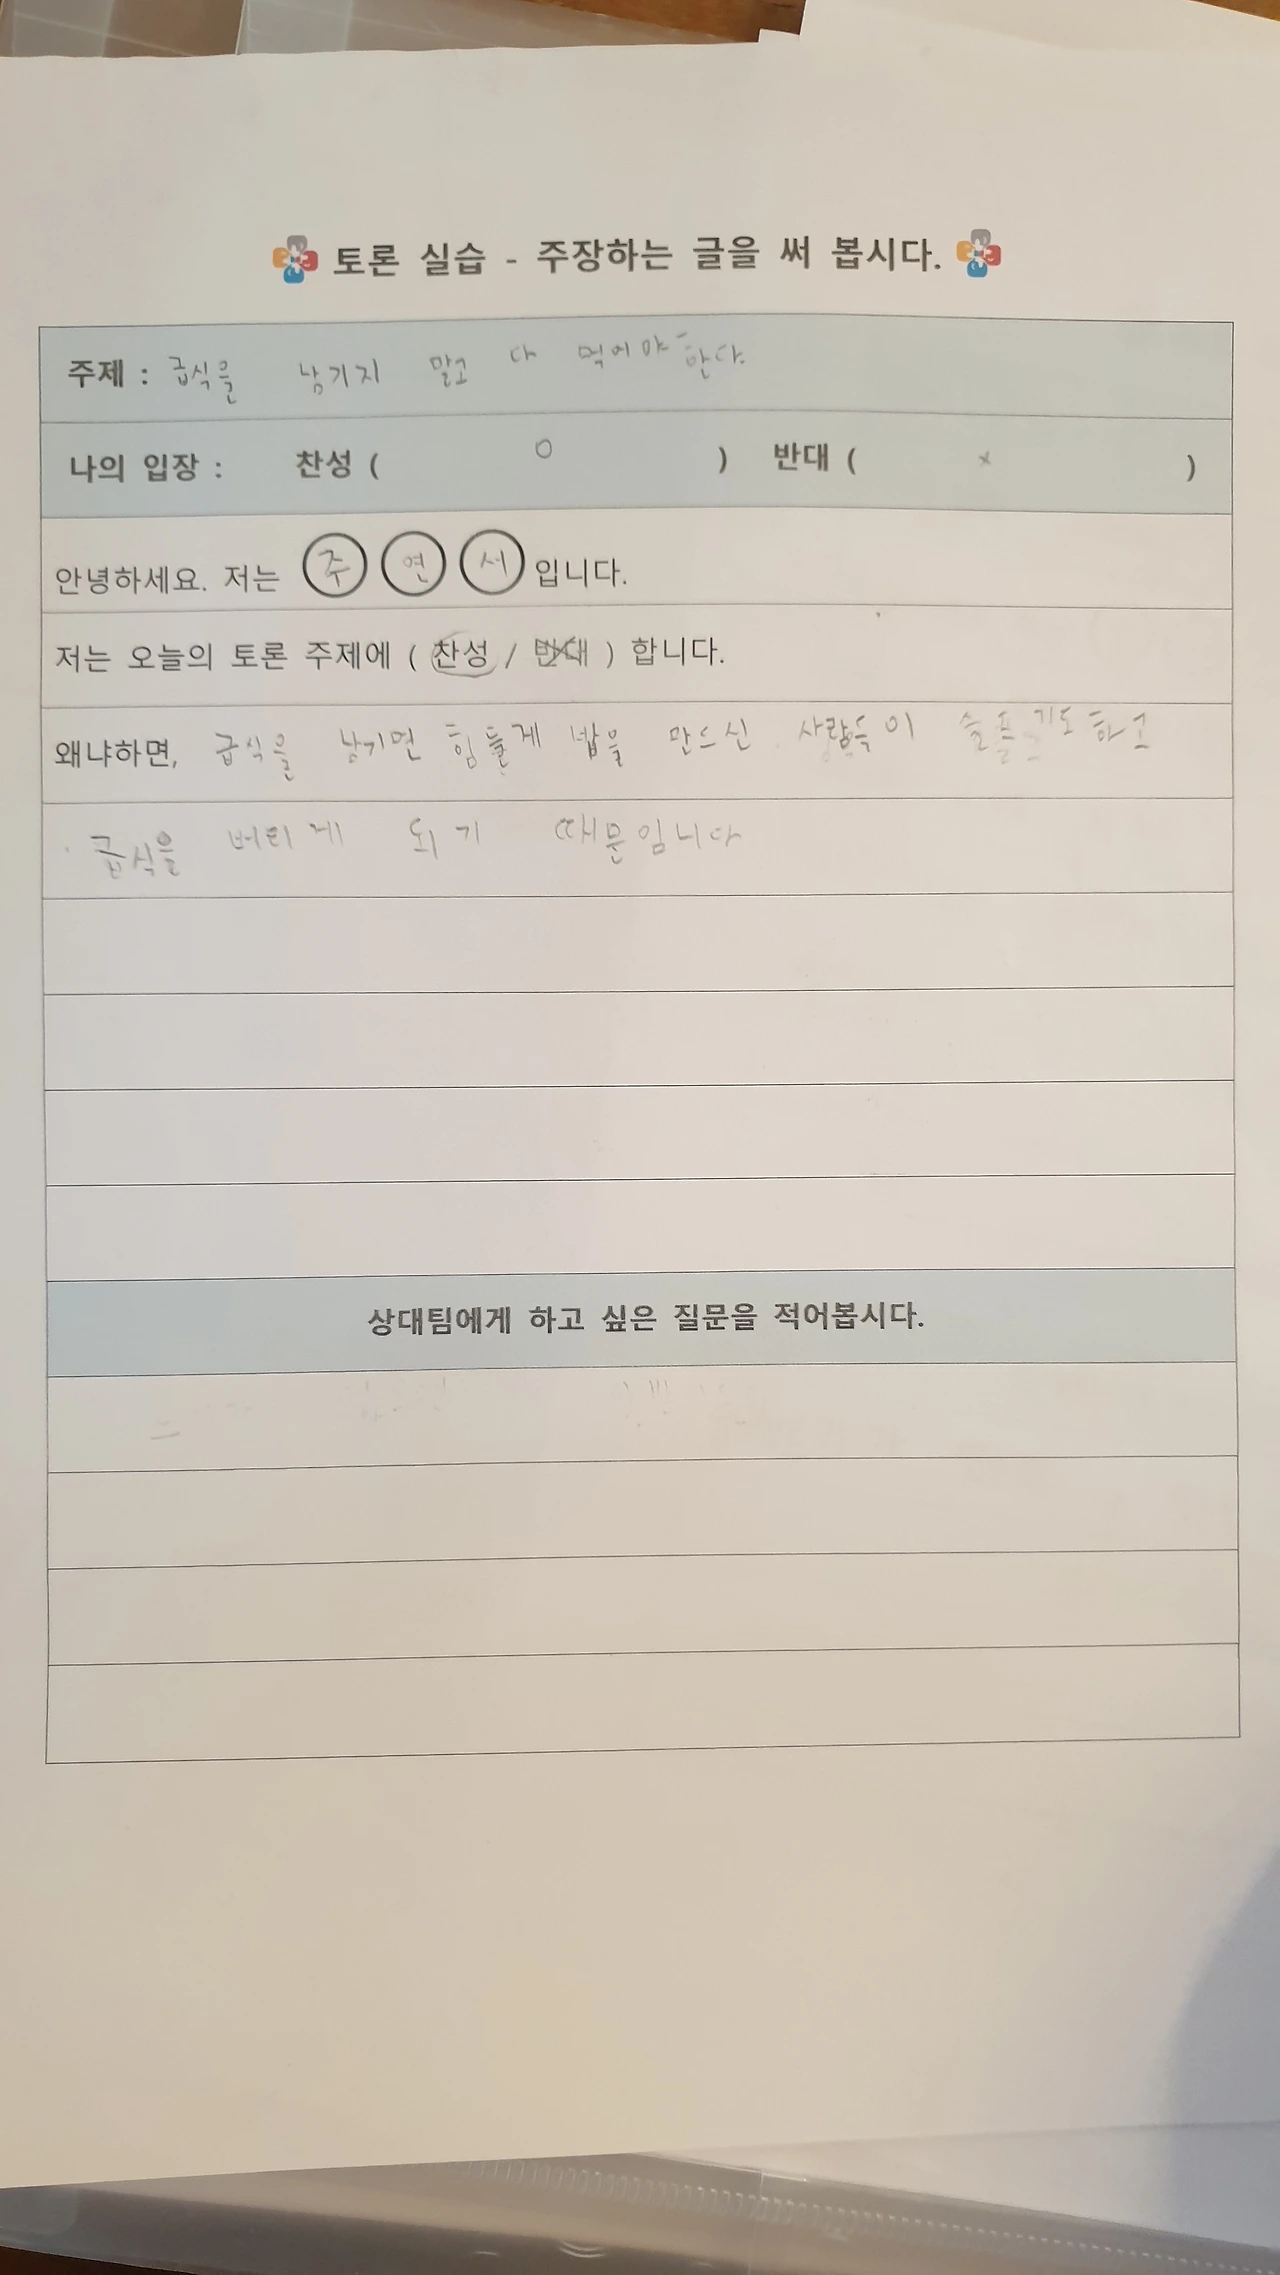 토론 실습 - 주장하는 글을 써 봅시다.
주제 : 급식을 남기지 말고 다 먹어야 한다.
나의 입장 : 찬성 ( O ) 반대 ( x )
안녕하세요. 저는 주 연 서 입니다.
저는 오늘의 토론 주제에 ( 찬성 / 반대 ) 합니다.
왜냐하면, 급식을 남기면 힘들게 밥을 만드신 사람들이 슬프기도 하고
급식을 버리게 되기 때문입니다
상대팀에게 하고 싶은 질문을 적어봅시다.